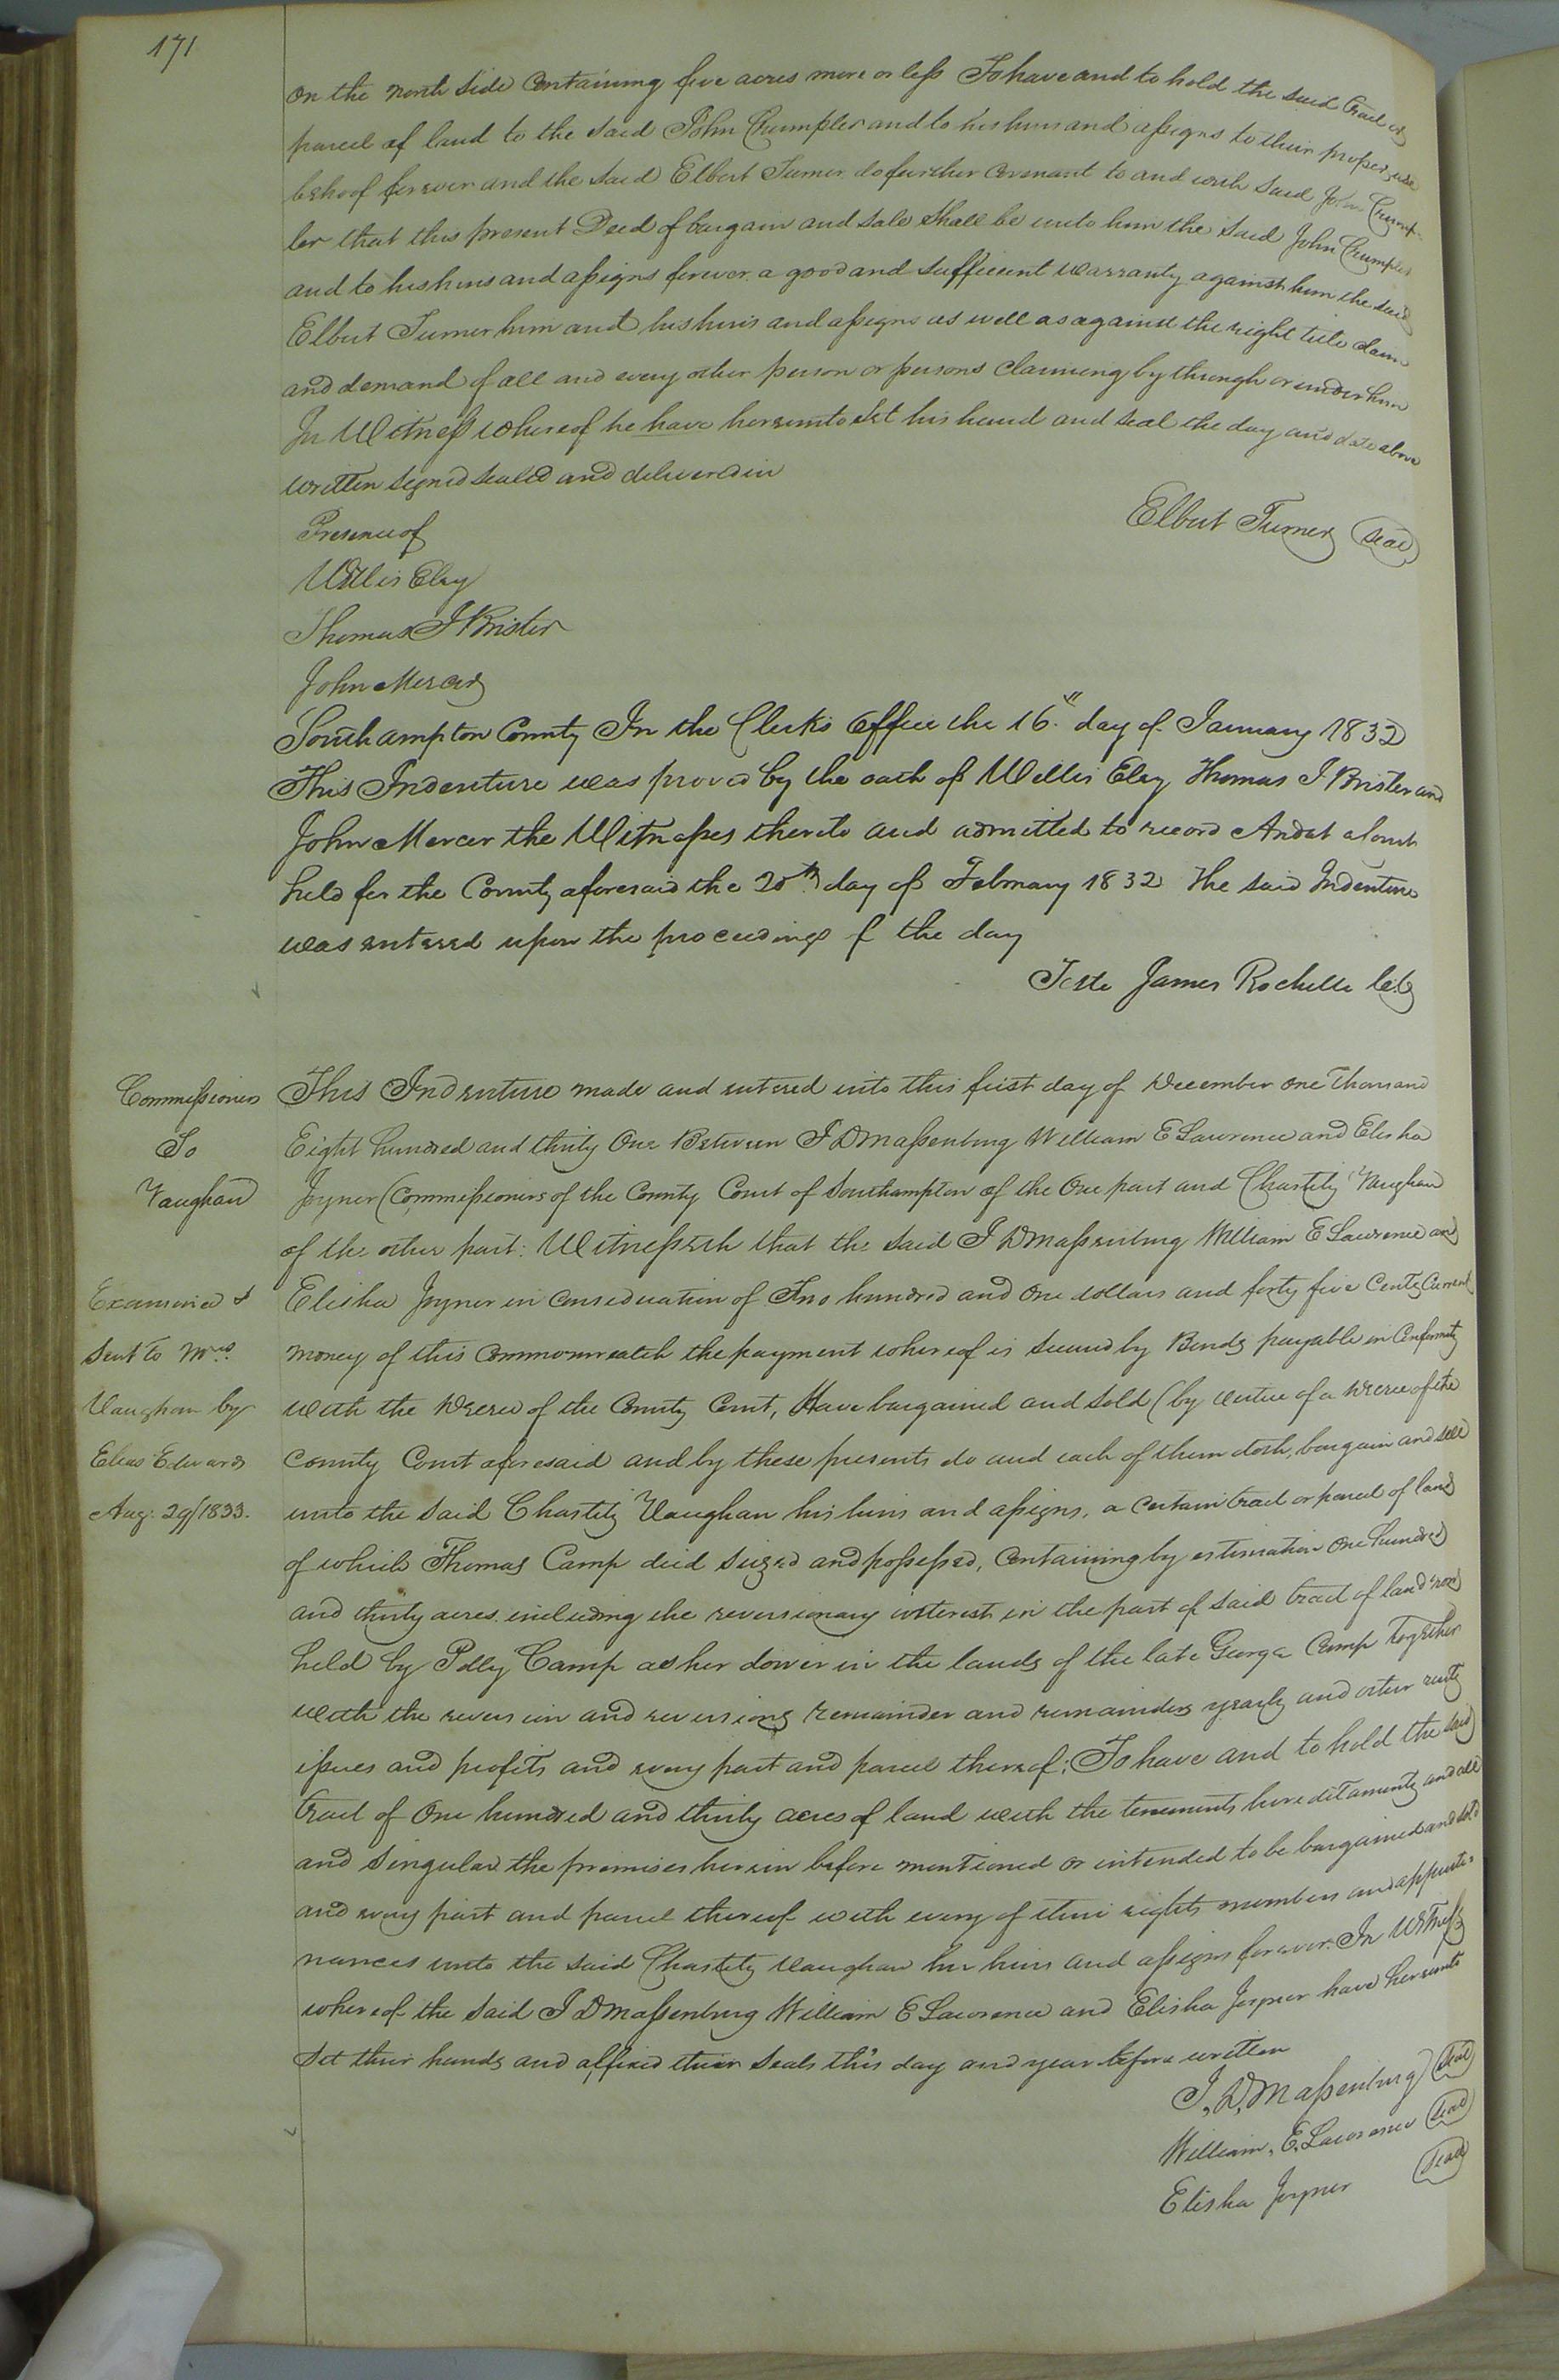 171
on the north side Containing five acres more or less To have and to hold the said tract or
parcel of land to the said John Crumpler and to his heirs and assigns to their proper use
behoof forever and the said Elbert Turner do further Covenant to and with said John Crump-
ler that this present Deed of bargain and sale shall be unto him the said John Crumpler
and to his heirs and assigns forever a good and sufficient warranty against him the said
Elbert Turner him and his heirs and assigns as well as against the right title claim
and demand of all and every other person or persons Claiming by through or under him
In Witness whereof he have hereunto set his hand and seal the day and date above
written signed sealed and delivered in
Presence of
Elbert Turner (seal)
Willis Eley
Thomas J Brister
John Mercer
Southampton County In the Clerks Office the 16" day of January 1832
This Indenture was proved by the oath of Willis Eley Thomas J Brister and
John Mercer the Witnesses thereto and admitted to record And at a Court
held for the County aforesaid the 20th day of February 1832 The said Indenture
was entered upon the proceedings of the day
Teste James Rochelle
Commissioners
To
Vaughan
This Indenture made and entered into this first day of December one Thousand
Eight hundred and thirty One Between J D Massenburg William E Lawrence and Elisha
Joyner (Commissioners of the County Court of Southampton of the One part and Chastity Vaughan
of the other part: Witnesseth that the said J D Massenburg William E Lawrence and
Examined &
Sent to Mrs.
Vaughan by
Elias Edwards
Aug: 29/1833.
Elisha Joyner in Consideration of Two hundred and One dollars and forty five Cents Current
money of this Commonwealth the payment whereof is Secured by Bonds payable in Conformity
with the Decree of the County Court, Have bargained and sold (by virtue of a Decree of the
County Court aforesaid and by these presents do and each of them doth, bargain and sell
unto the said Chastity Vaughan his heirs and assigns, a Certain tract or parcel of land
of which Thomas Camp died seized and possessed, Containing by estimation One hundred
and thirty acres including the reversionary interest in the part of said tract of land now
held by Polly Camp as her dower in the lands of the late George Camp Together
with the reversion and reversions remainder and remainders yearly and other rents
issues and profits and every part and parcel thereof; To have and to hold the said
tract of One hundred and thirty acres of land with the tenements hereditaments and all
and singular the premises herein before mentioned or intended to be bargained and sold
and every part and parcel thereof with every of their rights members and appurte-
nances unto the said Chastity Vaughan her heirs and assigns forever. In Witness
whereof the said J D Massenburg William E Lawrence and Elisha Joyner have hereunto
Set their hands and affixed their Seals this day and year before written
J. D. Massenburg (seal)
William, E, Lawrence (seal)
Elisha Joyner (seal)